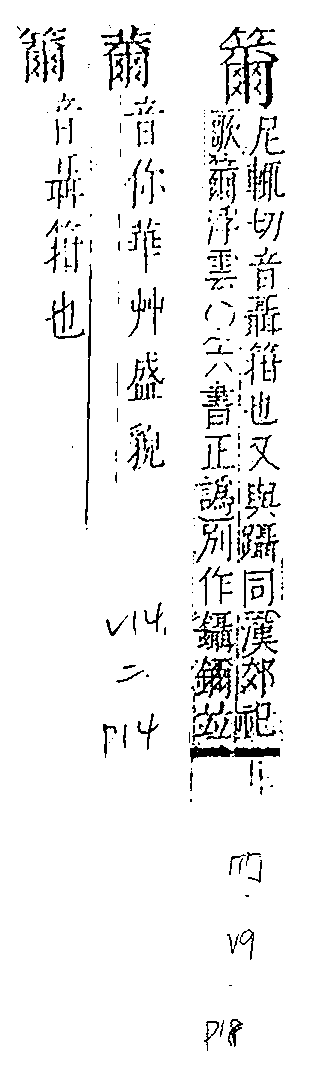 籋
尼輒切音聶箝也又與躡同漢郊祀
歌籋浮雲〇六書正譌別作鑷鑈並
V9
P18
薾
音你華艸盛貌
V14.
二.
P14
籋
音聶箝也